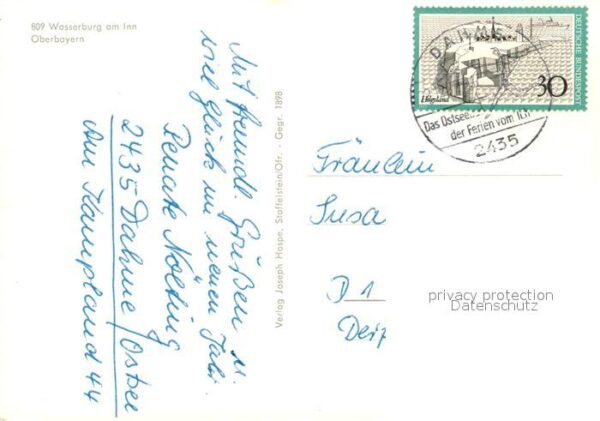 809 Wasserburg am Inn
Oberbayern
Mit freundl. Grüßen u.
viel Glück im neuen Jahr.
Renate Nölting
2435 Dahme/Ostsee
Am Kampland 44
Verlag Joseph Haspe, Staffelstein/Ofr. - Gegr. 1898
DEUTSCHE BUNDESPOST
30
Helgoland
DAHME
Das Ostsee
der Ferien vom Ich
2435
Fräulein
Susa
D 1
privacy protection
Datenschutz